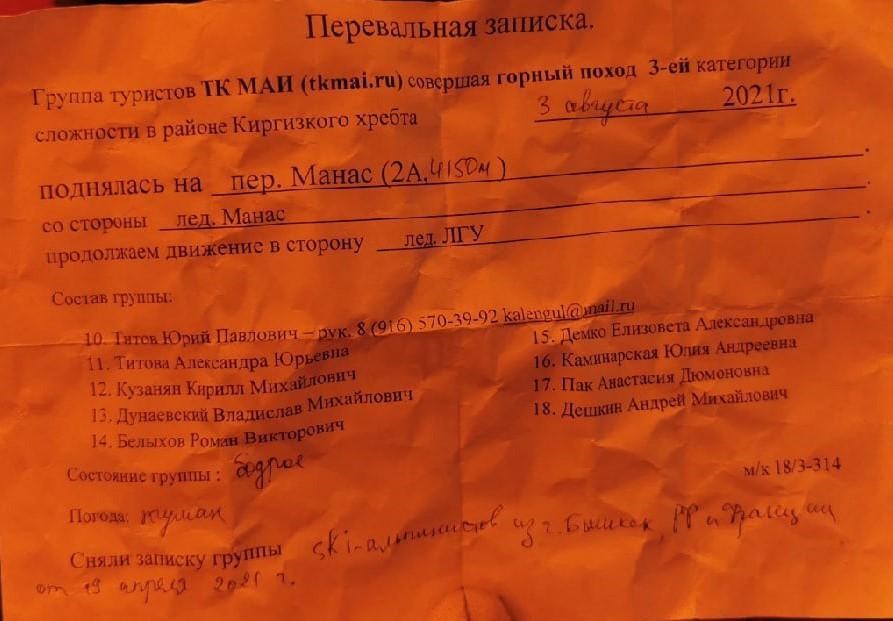 Перевальная записка.
Группа туристов ТК МАИ (tkmai.ru) совершая горный поход 3-ей категории
сложности в районе Киргизкого хребта 3 августа 2021г.
поднялась на пер. Манас (2А, 4150м)
со стороны лед. Манас
продолжаем движение в сторону лед. ЛГУ
Состав группы:
10. Титов Юрий Павлович – рук. 8 (916) 570-39-92 kalengul@mail.ru
11. Титова Александра Юрьевна
12. Кузанян Кирилл Михайлович
13. Дунаевский Владислав Михайлович
14. Белыхов Роман Викторович
15. Демко Елизовета Александровна
16. Каминарская Юлия Андреевна
17. Пак Анастасия Дюмоновна
18. Дешкин Андрей Михайлович
Состояние группы: бодрое
м/к 18/3-314
Погода: туман
Сняли записку группы ski-альпинистов из г. Бишкек, РФ и Франции
от 19 апреля 2021 г.